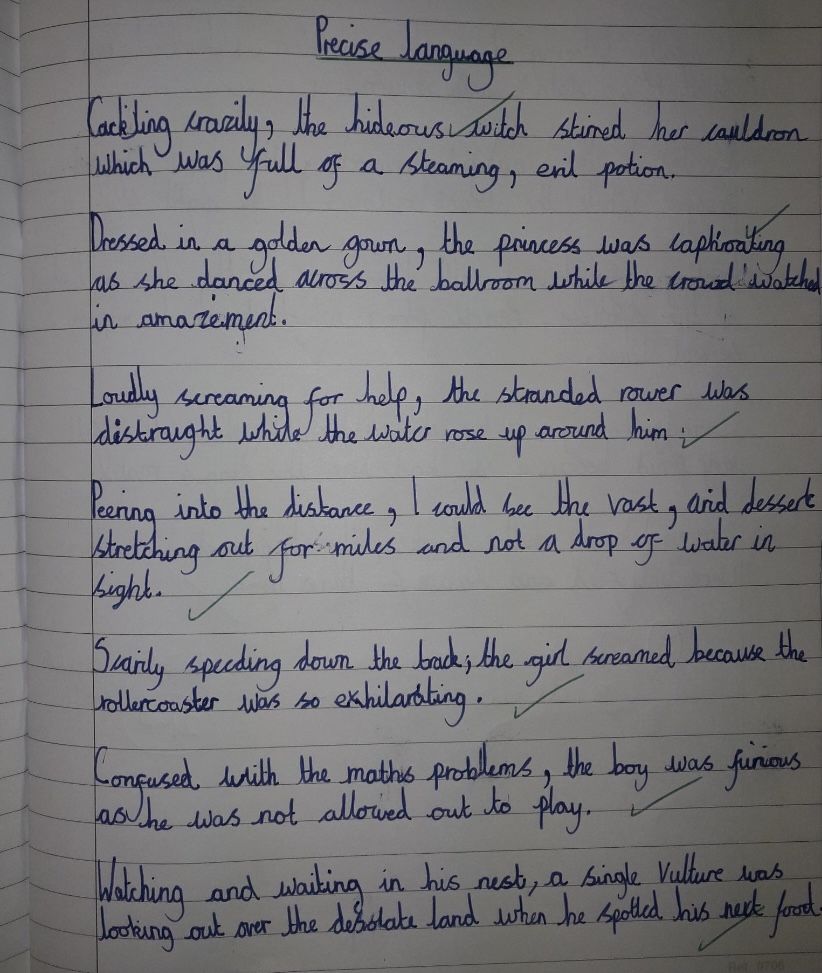 Precise language
Cackling crazily, the hideous witch stirred her cauldron
which was full of a steaming, evil potion.
Dressed in a golden gown, the princess was captivating
as she danced across the ballroom while the crowd watched
in amazement.
Loudly screaming for help, the stranded rower was
distraught while the water rose up around him.
Peering into the distance, I could see the vast, arid dessert
stretching out for miles and not a drop of water in
sight.
Scarily speeding down the track; the girl screamed because the
rollercoaster was so exhilarating.
Confused with the maths problems, the boy was furious
as he was not allowed out to play.
Watching and waiting in his nest, a single vulture was
looking out over the desolate land when he spotted his next food.